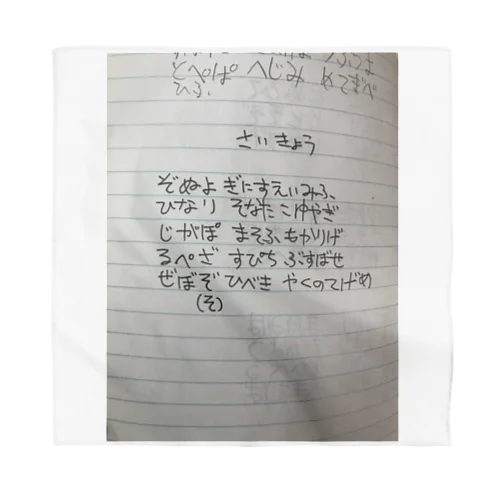 とぺぱ へじみ めてまべ
ひふ
さいきょう
ぞぬよ ぎにすえいみふ、
ひなり そなたこゆやぎ
じがぽ まそふもかりげ
るぺざ すぴち ぶすばせ
ぜぼぞ ひべき やくのてげめ
(そ)